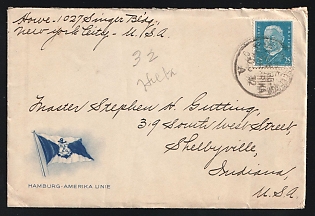 Howe - 1027 Singer Bldg,
New York City - U.S.A.
32
Master Stephen H. Gutting,
319 South West Street,
Shelbyville,
Indiana,
U.S.A.
HAMBURG-AMERIKA LINIE
25